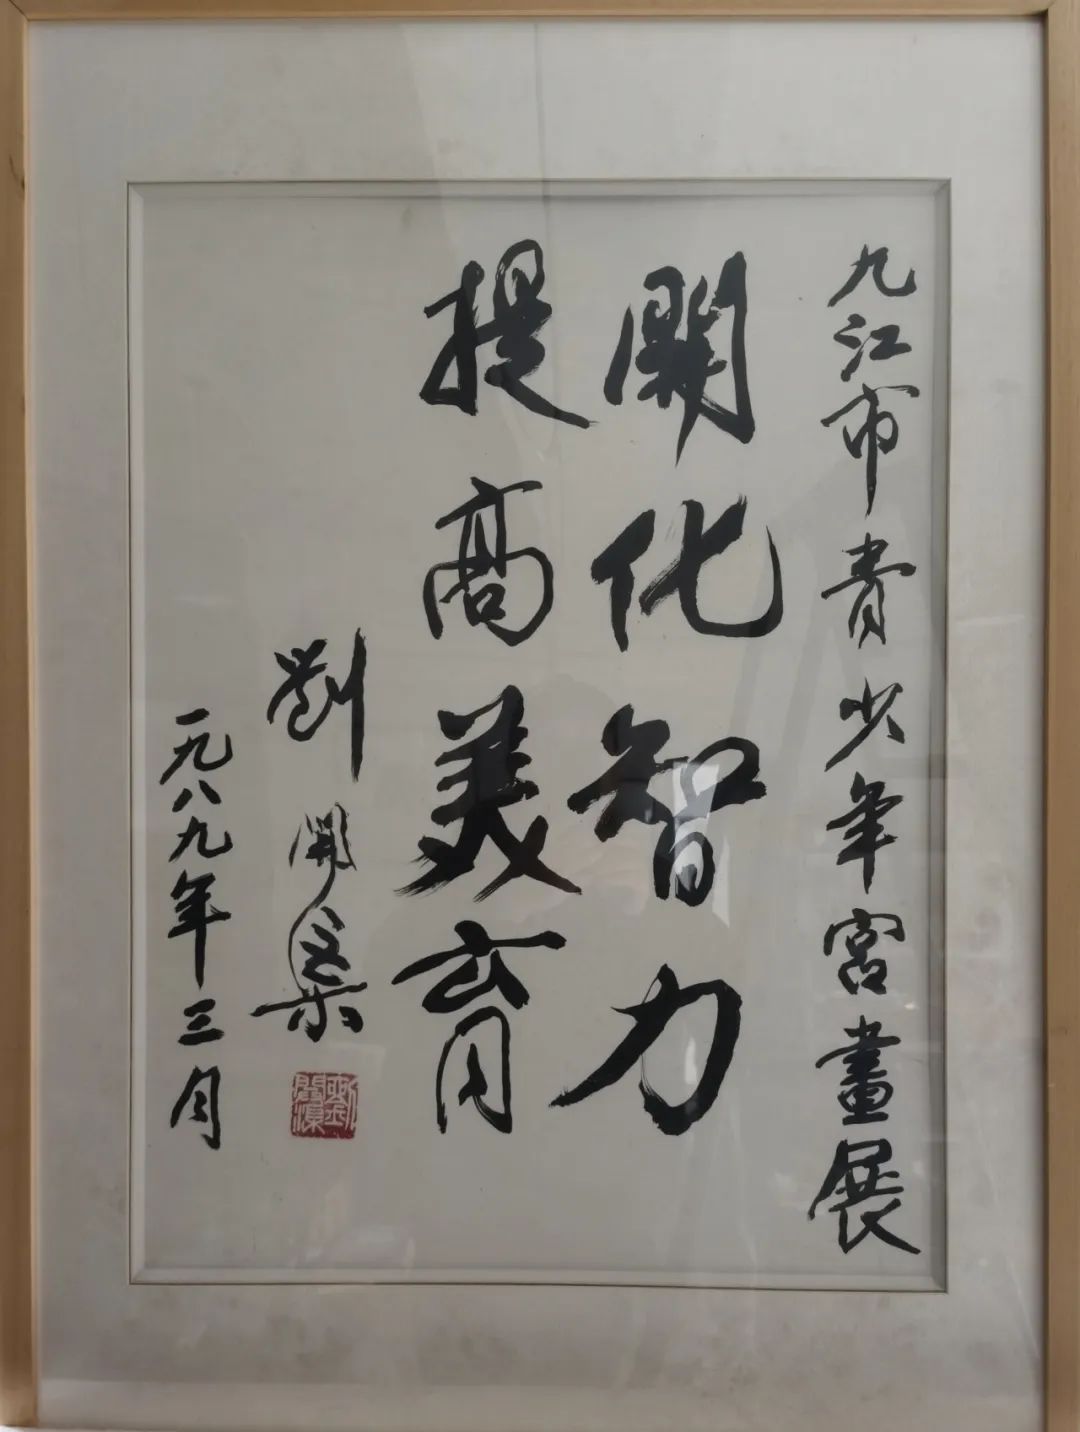 九江市青少年宮畫展
開化智力
提高美育
劉開渠
一九八九年三月